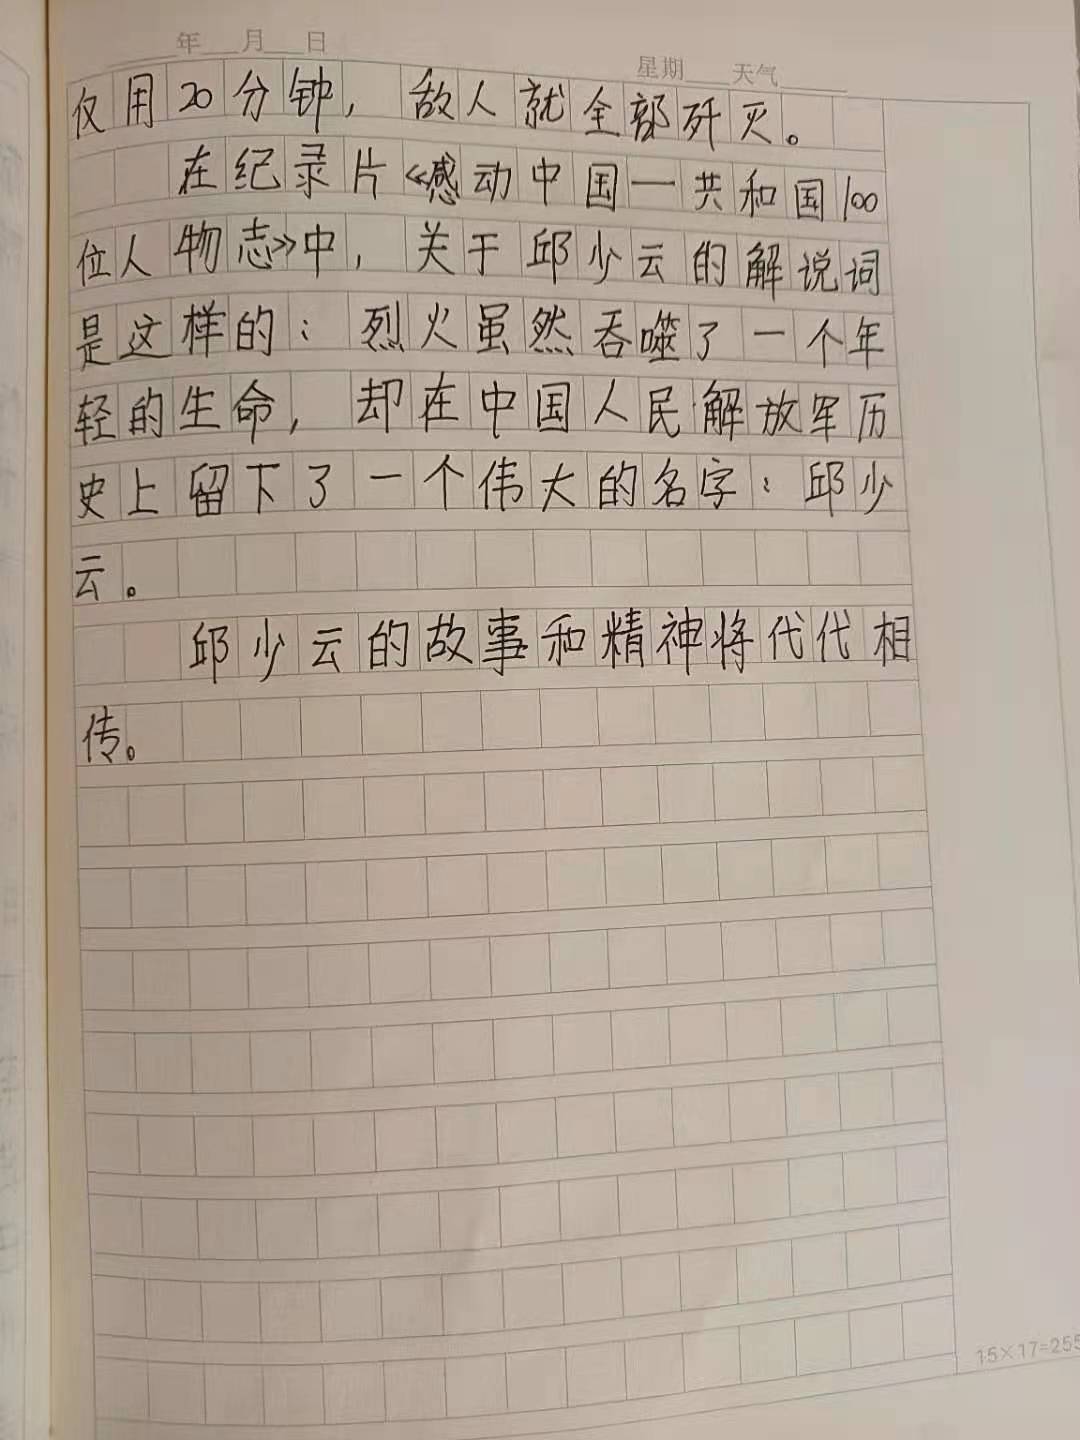 年 月 日
星期 天气
仅用20分钟，敌人就全部歼灭。
在纪录片《感动中国一共和国100
位人物志》中，关于邱少云的解说词
是这样的：烈火虽然吞噬了一个年
轻的生命，却在中国人民解放军历
史上留下了一个伟大的名字：邱少
云。
邱少云的故事和精神将代代相
传。
15×17=255